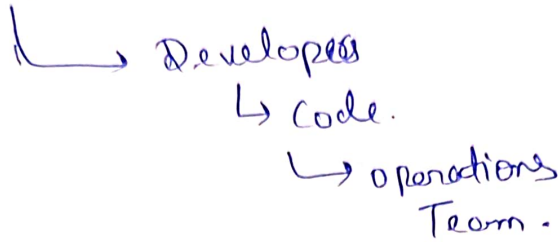 Developers
↳ Code.
↳ Operations
Team.